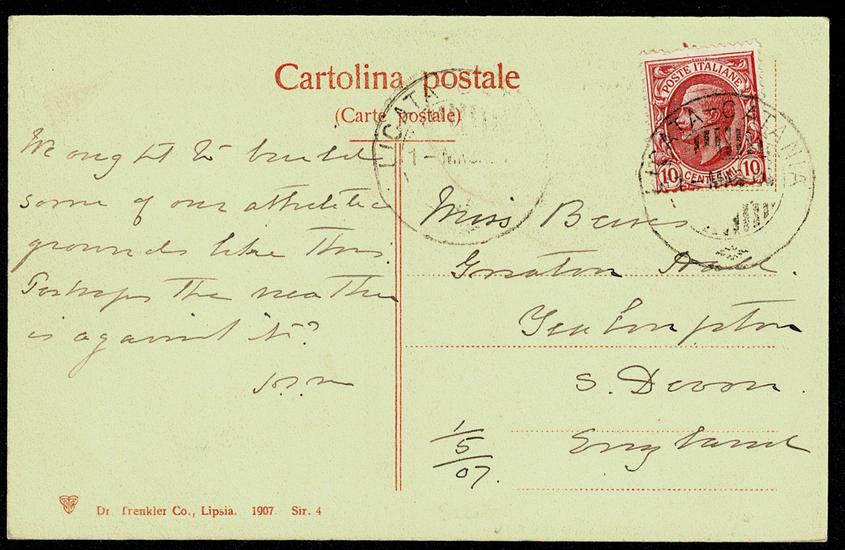 Cartolina postale
(Carte postale)
We ought to build
some of our athletic
grounds like this.
Perhaps the weather
is against it?
POSTE ITALIANE
10 CENTESIMI 10
LICATA-CATANIA
LICATA
Miss
Hall.
Yealmpton
S. Devon.
England
1/5/07.
Dr. Trenkler Co., Lipsia. 1907 Sir. 4